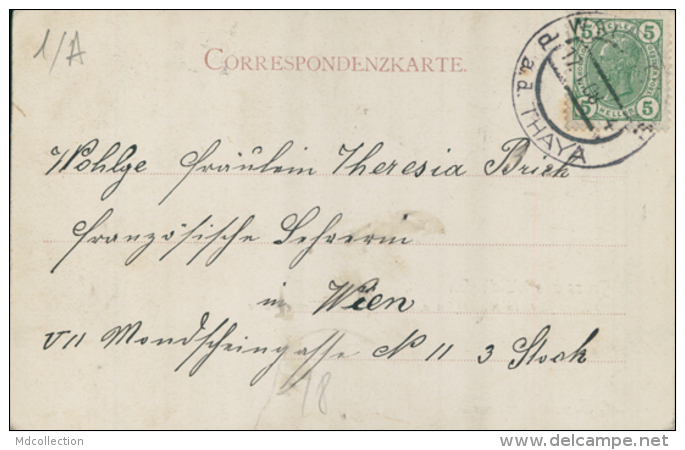 1/A
CORRESPONDENZKARTE.
5 5
5 HELLER 5
a.d. THAYA
Wohlge Fräulein Theresia Brich
französische Lehrerin
in Wien
VII Mondscheingasse N 11 3 Stock
18
Mdcollection
www.delcampe.net